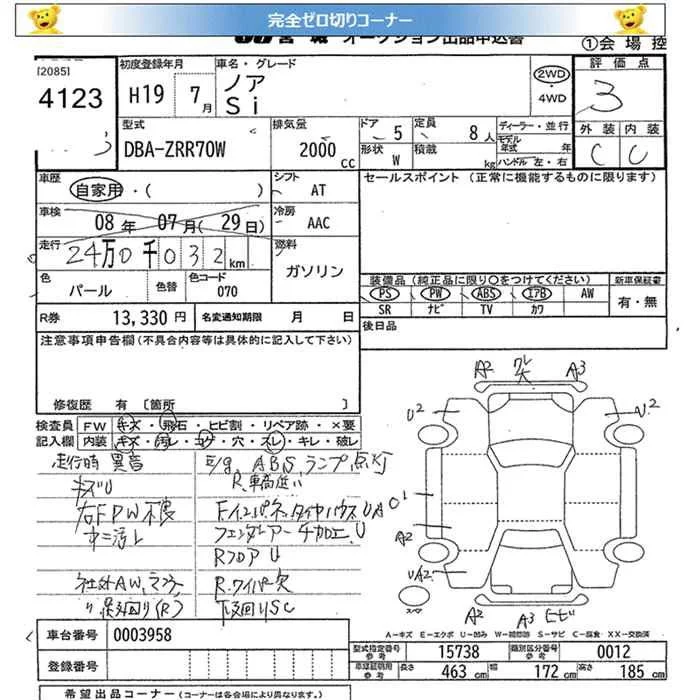 完全ゼロ切りコーナー
宮城 オークション出品申込書
①会場控
[2085]
4123
初度登録年月
H19 7月
車名・グレード
ノア
Si
2WD
・4WD
評価点
3
外装 内装
C C
型式
DBA-ZRR70W
排気量
2000 cc
ドア 5
形状 W
定員 8人
積載 kg
ディーラー・並行
モデル年式 年
ハンドル 左・右
車歴
自家用・( )
シフト AT
セールスポイント (正常に機能するものに限ります)
車検
08年 07月(29日)
冷房 AAC
走行
24万0千032km
燃料
ガソリン
色
パール
色替
色コード
070
装備品(純正品に限り〇をつけてください)
新車保証書
PS PW ABS エアB AW
SR ナビ TV カワ
有・無
R券 13,330円 名変通知期限 月 日
後日品
注意事項申告欄(不具合内容等は具体的に記入して下さい)
修復歴 有 〔箇所 〕
検査員 FW キズ・飛石・ヒビ割・リペア跡・×要
記入欄 内装 キズ・汚レ・コゲ・穴・スレ・キレ・破レ
走行時 異音
キズU
右FPW不良
社外AW,
E/g, ABSランプ点灯
R,車高低い
フェンダーアーチ加工,U
RフロアU
R.ワイパー欠
下廻りSC
A2 A3
U2 U2
A2
UA2
スマ
A2 A3 ヒビ
A-キズ E-エクボ U-凹み W-補修跡 S-サビ C-腐食・XX-交換済
車台番号 0003958
登録番号
型式指定番号 参考 15738
類別区分番号 参考 0012
車庫証明用 参考 長さ 463 cm 幅 172 cm 高さ 185 cm
希望出品コーナー (コーナーは各会場により異なります。)